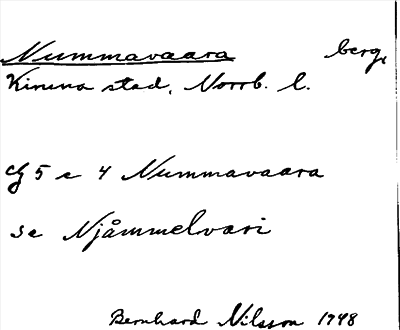 Nummavaara berg,
Kiruna stad, Norrb. l.
Cf 5 e 4 Nummavaara
se Njåmmelvari
Bernhard Nilsson 1948